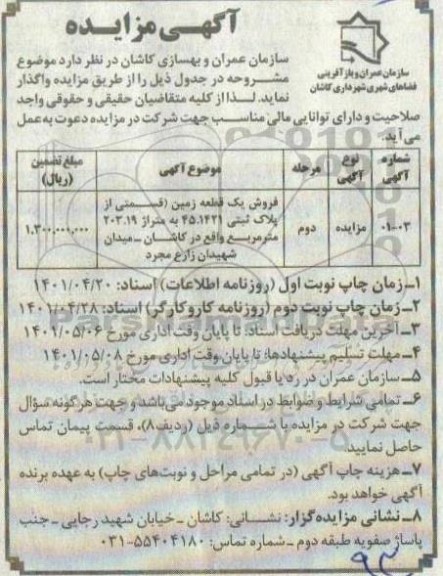 آگهی مزایده
سازمان عمران و بازآفرینی
فضاهای شهری شهرداری کاشان
سازمان عمران و بهسازی کاشان در نظر دارد موضوع
مشروحه در جدول ذیل را از طریق مزایده واگذار
نماید. لذا از کلیه متقاضیان حقیقی و حقوقی واجد
صلاحیت و دارای توانایی مالی مناسب جهت شرکت در مزایده دعوت به عمل
می‌آید.
شماره آگهی | نوع آگهی | مرحله | موضوع آگهی | مبلغ تضمین (ریال)
۰۱-۰۳ | مزایده | دوم | فروش یک قطعه زمین (قسمتی از
پلاک ثبتی ۴۵.۱۴۲۱ به متراژ ۲۰۳.۱۹
مترمربع واقع در کاشان ـ میدان
شهیدان زارع مجرد | ۱.۳۰۰.۰۰۰.۰۰۰
۱ـ زمان چاپ نوبت اول (روزنامه اطلاعات) اسناد: ۱۴۰۱/۰۴/۲۰
۲ـ زمان چاپ نوبت دوم (روزنامه کاروکارگر) اسناد: ۱۴۰۱/۰۴/۲۸
۳ـ آخرین مهلت دریافت اسناد: تا پایان وقت اداری مورخ ۱۴۰۱/۰۵/۰۶
۴ـ مهلت تسلیم پیشنهادها: تا پایان وقت اداری مورخ ۱۴۰۱/۰۵/۰۸
۵ـ سازمان عمران در رد یا قبول کلیه پیشنهادات مختار است.
۶ـ تمامی شرایط و ضوابط در اسناد موجود می‌باشد و جهت هرگونه سؤال
جهت شرکت در مزایده با شماره ذیل (ردیف ۸)، قسمت پیمان تماس
حاصل نمایید.
۷ـ هزینه چاپ آگهی (در تمامی مراحل و نوبت‌های چاپ) به عهده برنده
آگهی خواهد بود.
۸ـ نشانی مزایده‌گزار: نشانی: کاشان ـ خیابان شهید رجایی ـ جنب
پاساژ صفویه طبقه دوم ـ شماره تماس: ۵۵۴۰۴۱۸۰-۰۳۱
۰۲۱-۸۸۳۴۹۶۷۰-۵